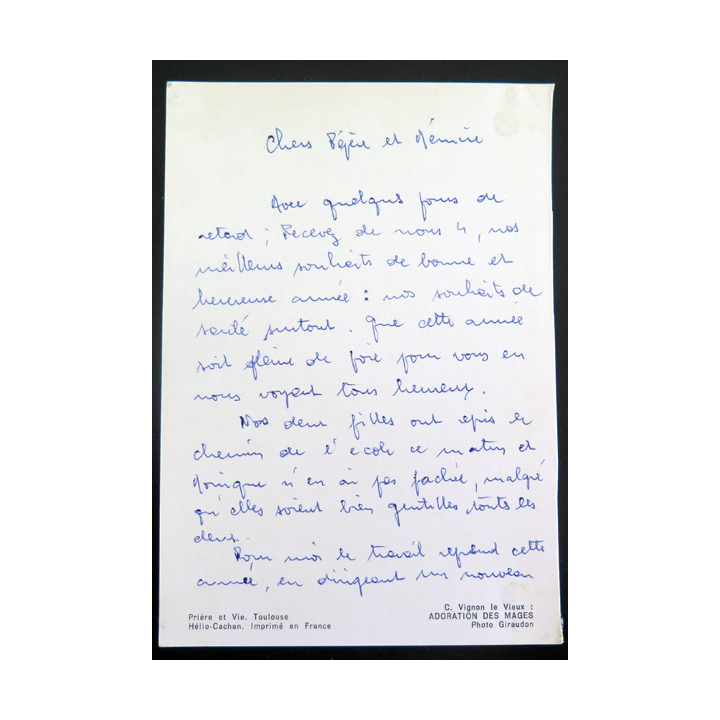 Chers Pépère et Mémère
Avec quelques jours de
retard ; Recevez de nous 4, nos
meilleurs souhaits de bonne et
heureuse année : nos souhaits de
santé surtout. Que cette année
soit pleine de joie pour vous en
nous voyant tous heureux.
Nos deux filles ont repris le
chemin de l'école ce matin et
n'en ai pas fachée, malgré
qu'elles soient bien gentilles toutes les
deux.
Pour moi le travail reprend cette
année, en dirigeant un nouveau
Prière et Vie. Toulouse
Hélio-Cachan. Imprimé en France
C. Vignon le Vieux :
ADORATION DES MAGES
Photo Giraudon